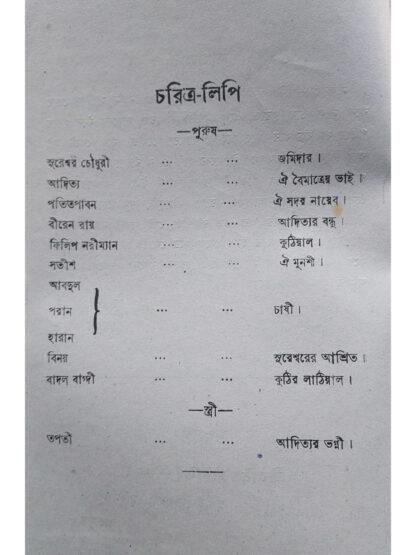 চরিত্র-লিপি
—পুরুষ—
সুরেশ্বর চৌধুরী ... ... জমিদার ।
আদিত্য ... ... ঐ বৈমাত্রেয় ভাই ।
পতিতপাবন ... ... ঐ সদর নায়েব ।
বীরেন রায় ... ... আদিত্যর বন্ধু ।
ফিলিপ নরীম্যান ... ... কুঠিয়াল ।
সতীশ ... ... ঐ মুনশী ।
আবদুল
পরান ... ... চাষী ।
হারান
বিনয় ... ... সুরেশ্বরের আশ্রিত ।
বাদল বাগ্দী ... ... কুঠির লাঠিয়াল ।
—স্ত্রী—
তপতী ... ... আদিত্যর ভগ্নী ।